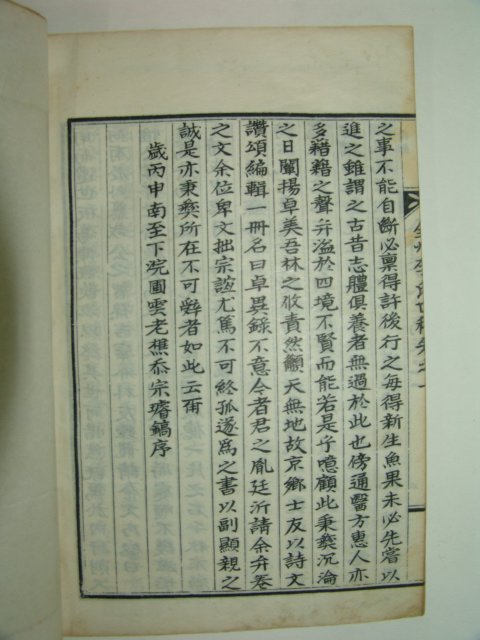 之事不能自斷必禀得許後行之每得新生魚果未必先嘗以
進之雖謂之古昔志體俱養者無過於此也傍通醫方惠人亦
多藉藉之聲幷溢於四境不賢而能若是乎噫顧此秉彜沉淪
之日闡揚卓美吾林之攸責然顲天無地故京鄕士友以詩文
讚頌編輯一冊名曰卓異錄不意今者君之胤廷沂請余弁卷
之文余位卑文拙宗誼尤篤不可終孤遂爲之書以副顯親之
誠是亦秉彜所在不可辭者如此云爾
歲丙申南至下浣圃雲老樵忝宗璿鎬序